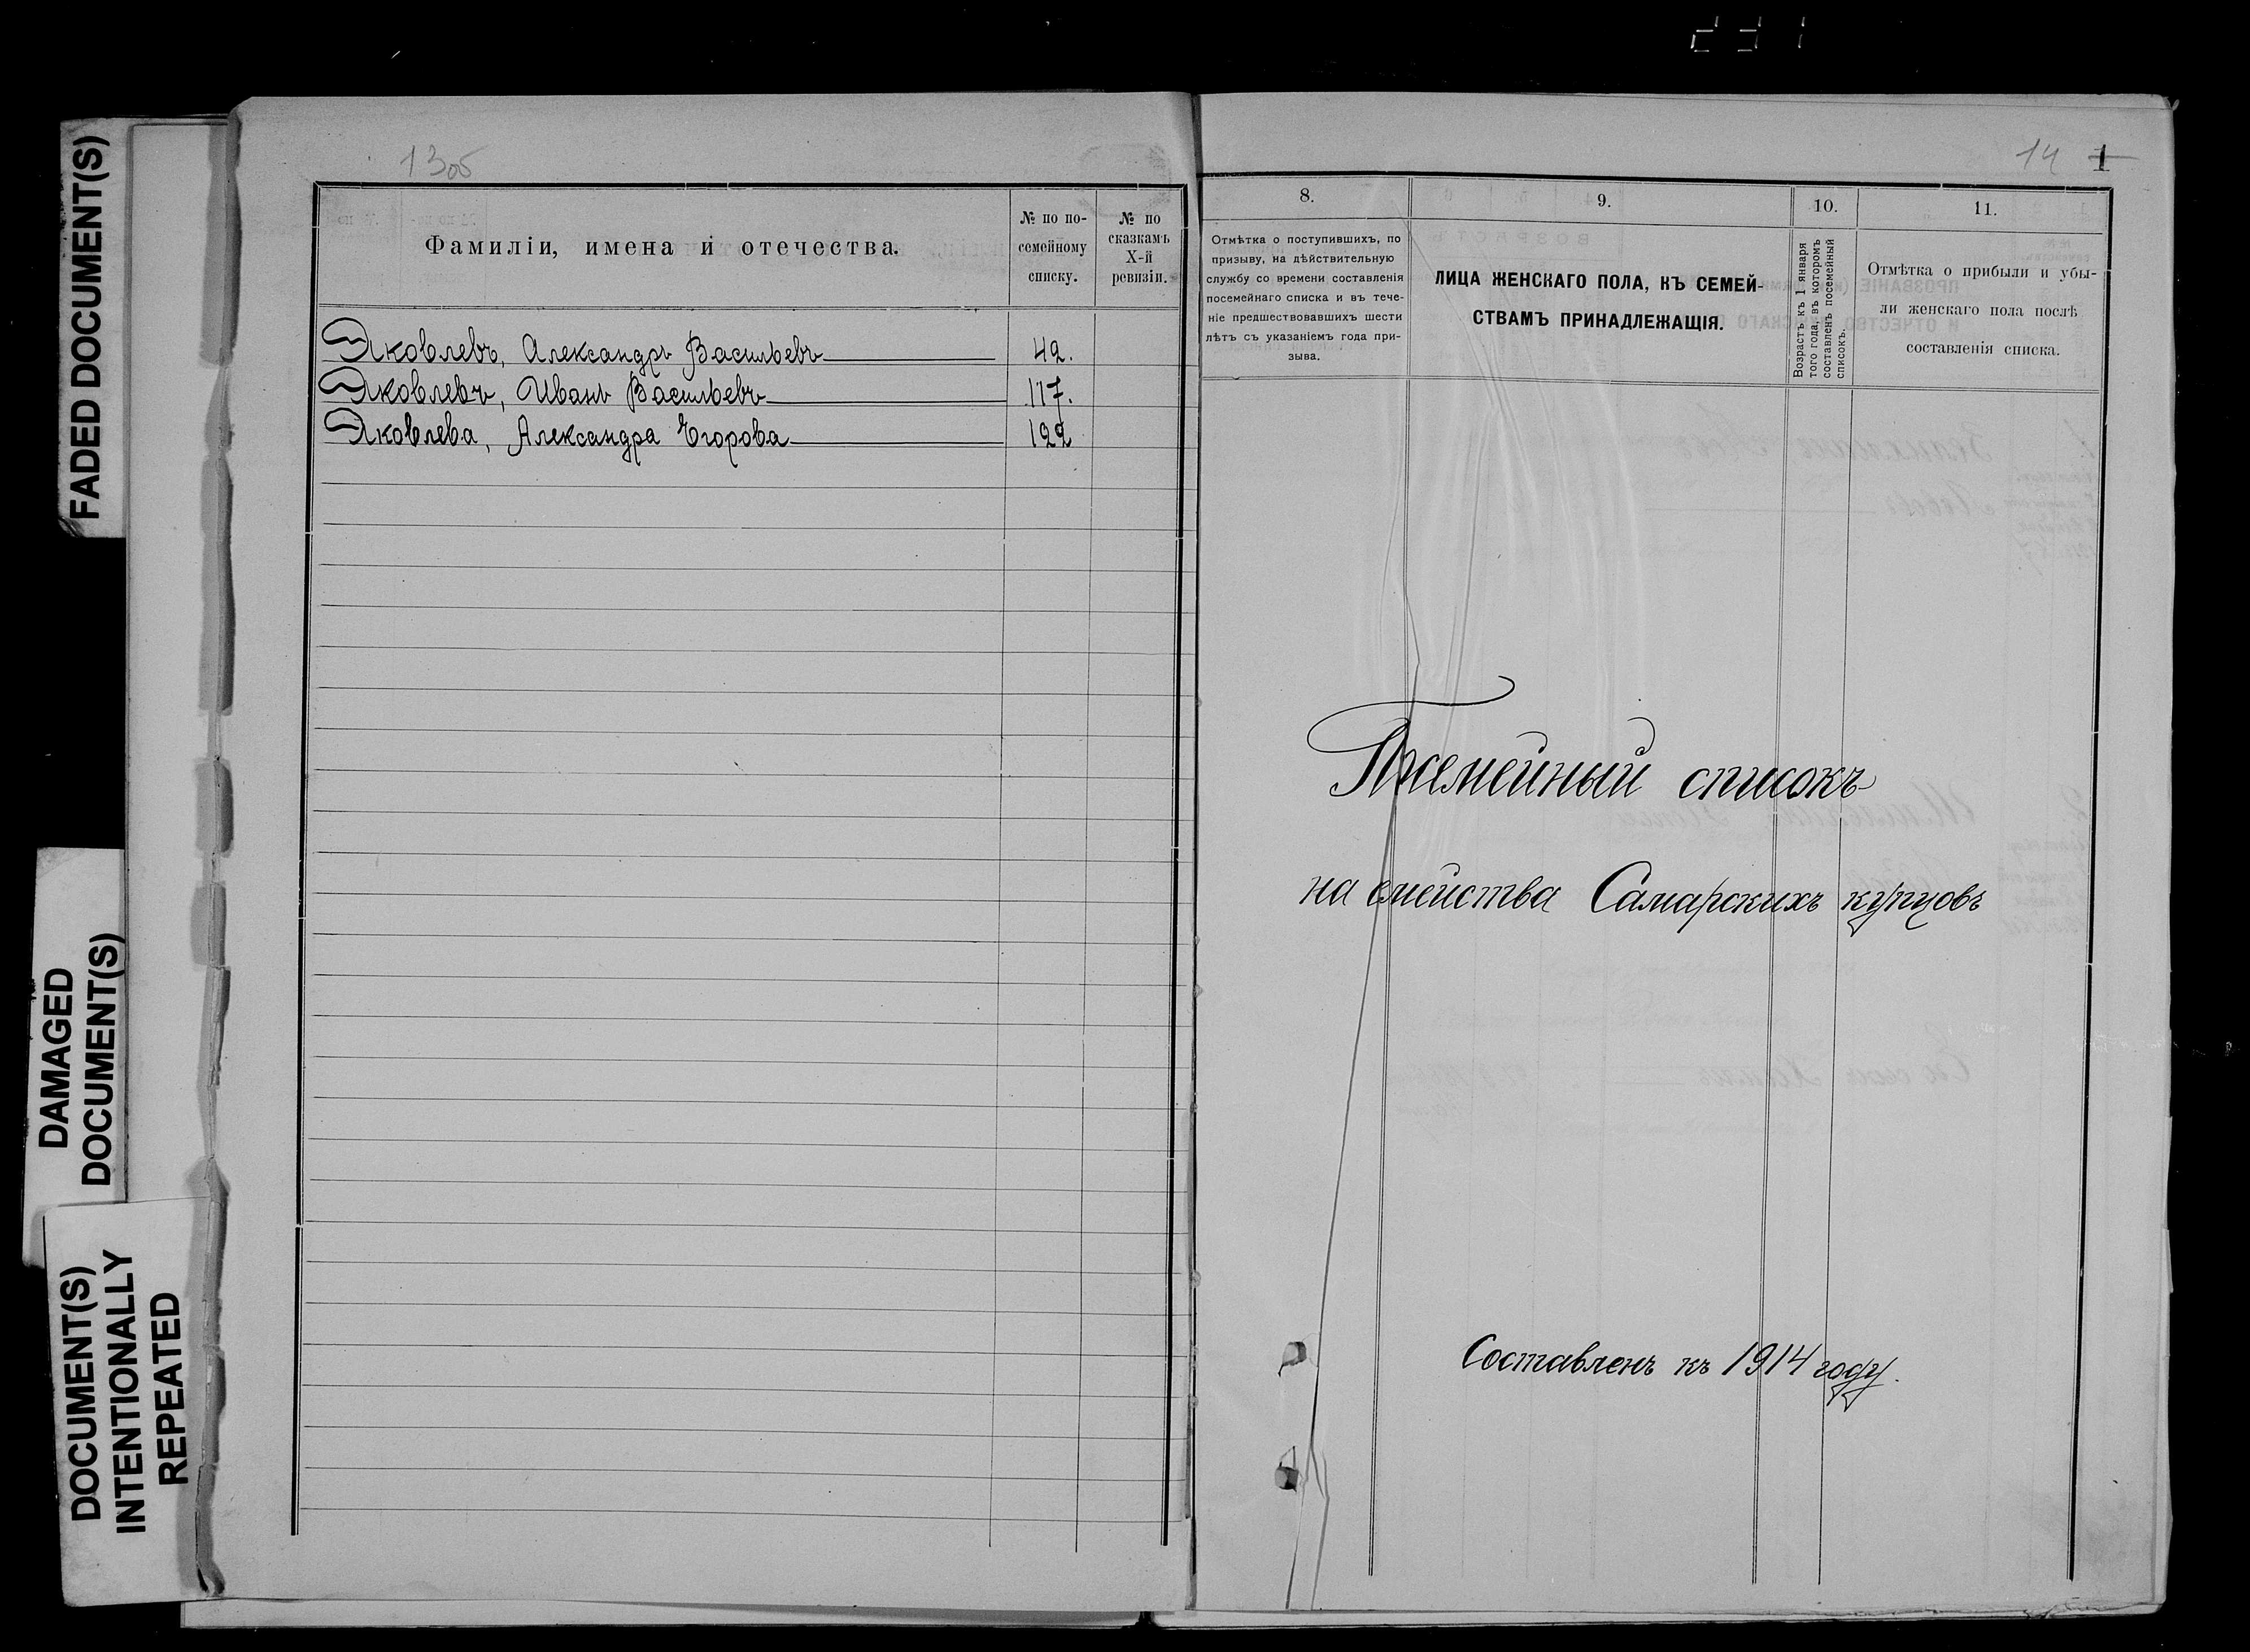 FADED DOCUMENT(S)
DAMAGED
DOCUMENT(S)
DOCUMENT(S)
INTENTIONALLY
REPEATED
13об
Фамиліи, имена и отечества.
№ по по-
семейному
списку.
№ по
сказкамъ
X-й
ревизіи.
Яковлевъ, Александръ Васильевъ 42.
Яковлевъ, Иванъ Васильевъ 117.
Яковлева, Александра Егорова 122
14 1
8.
9.
10.
11.
Отмѣтка о поступившихъ, по
призыву, на дѣйствительную
службу со времени составленія
посемейнаго списка и въ тече-
ніе предшествовавшихъ шести
лѣтъ съ указаніемъ года при-
зыва.
ЛИЦА ЖЕНСКАГО ПОЛА, КЪ СЕМЕЙ-
СТВАМЪ ПРИНАДЛЕЖАЩІЯ.
Возрастъ къ 1 января
того года, въ которомъ
составленъ посемейный
списокъ.
Отмѣтка о прибыли и убы-
ли женскаго пола послѣ
составленія списка.
Посемейный списокъ
на семейства Самарскихъ купцовъ
Составленъ къ 1914 году.